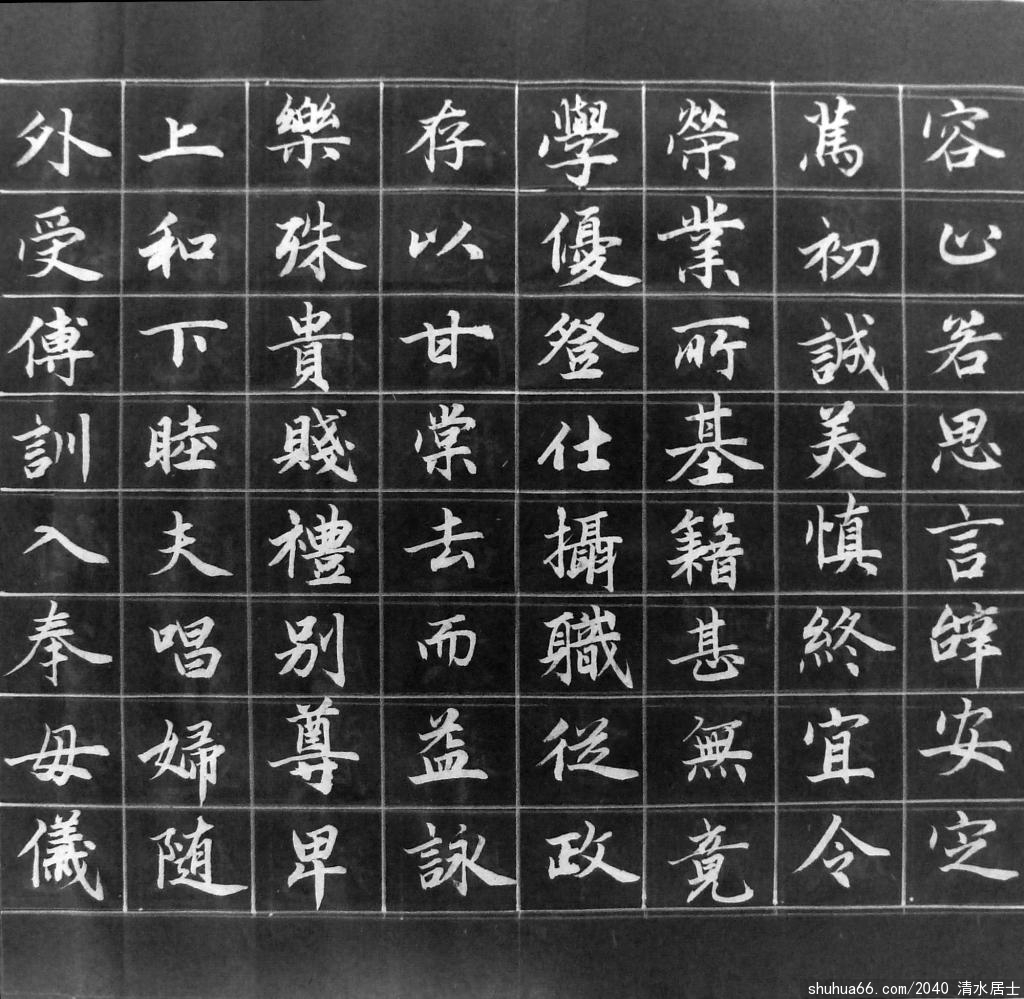 容止若思言辭安定
篤初誠美慎終宜令
榮業所基籍甚無竟
學優登仕攝職從政
存以甘棠去而益詠
樂殊貴賤禮别尊卑
上和下睦夫唱婦随
外受傅訓入奉母儀
shuhua66.com/2040 清水居士